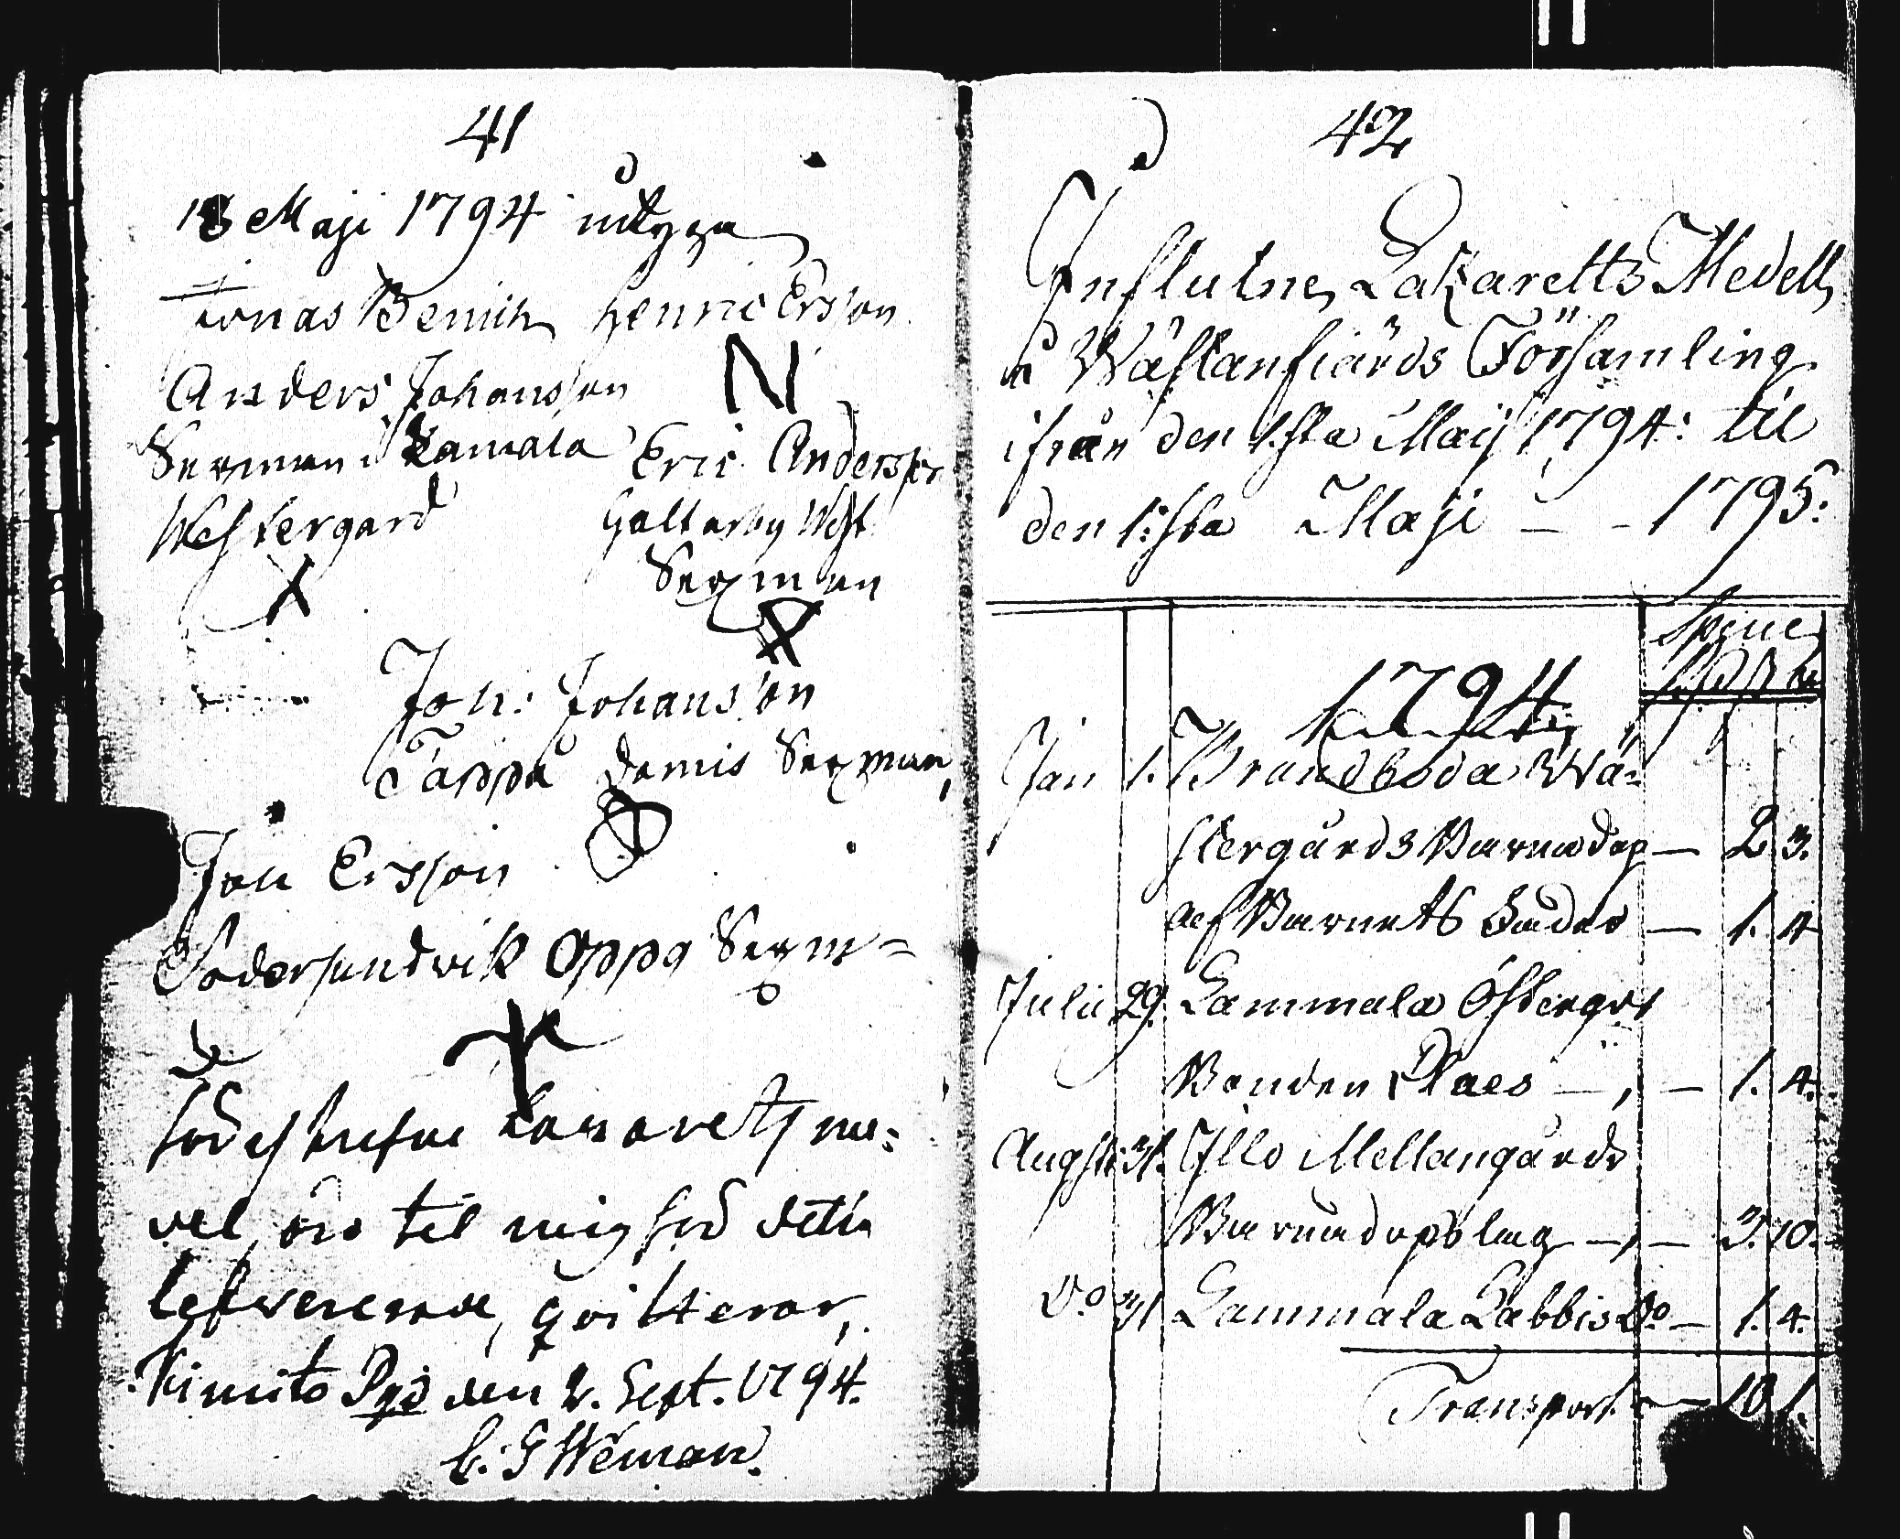 41
18 Maji 1794 intyga
Jonas Benich Henric Ersson
Anders Johansson N
Sexman i Lamala Eric Andersson
Westergård Galtarby West
Sexman
Joh: Johansson
Tappo Domis Sexman,
Joh Ersson
Södersundvik Oppg Sexm=
Förestående Lazaretz me=
del äro til mig för detta
lefvererade, qvitterar,
Kimito Pgd den 2. Sept. 1794.
C. G Weman.
42
Influtne Lazaretts Medell
i Wästanfiärds Församling
ifrån den 1:sta Maij 1794: til
den 1:sta Maji – – 1795:
1794
Jan 1. Brandboda Wä=
stergårds Barnedop — 2 3.
af Barnets Fader — 1. 4
Julii 29. Lammala Östergrs
Bonden Claes — , — 1. 4.
Augsti 31. Illo Mellangårds
Barnedopslag — , — 3. 10.
Do 31 Lammala Labbis Do — 1. 4.
Transport — 10 1.